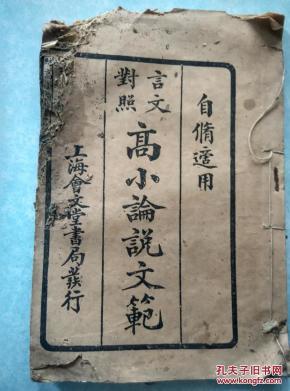 自脩適用
言文
對照
高小論說文範
上海會文堂書局發行
孔夫子旧书网